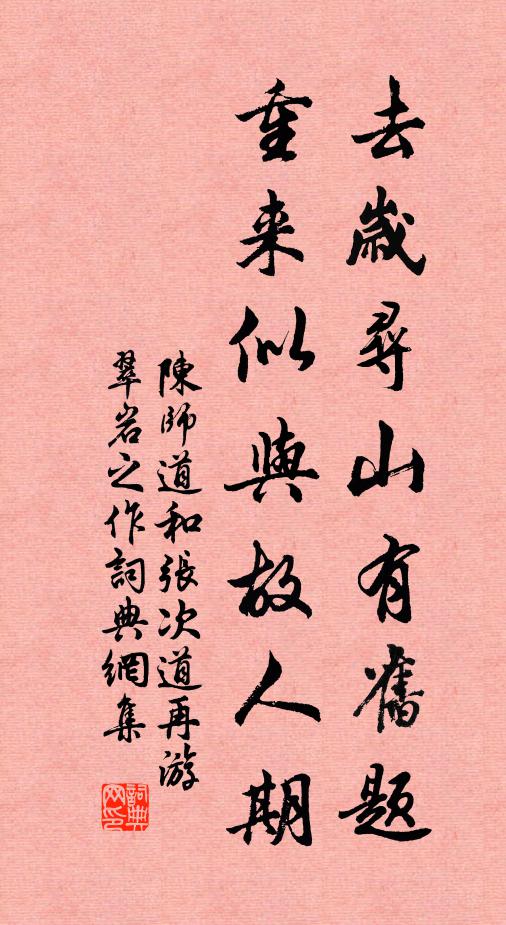 去歲尋山有舊題
重来似與故人期
陳師道和張次道再游
翠岩之作詞典網集
詞典网印